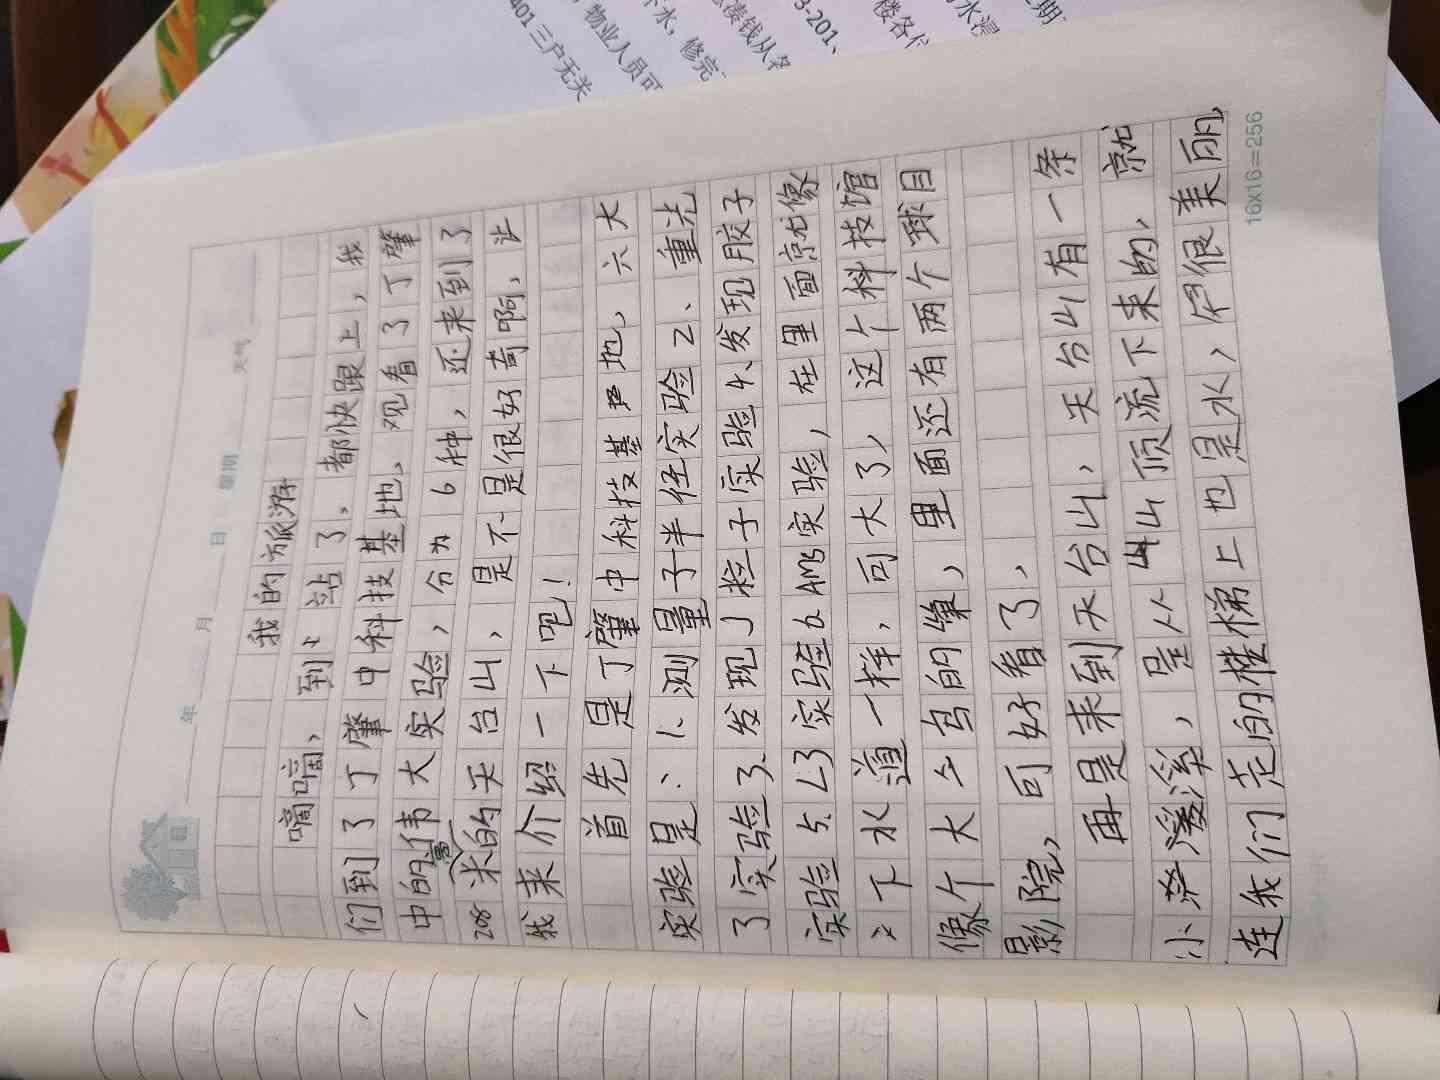 年 月 日 星期 天气
我的旅游
嘀嘀，到站了，都快跟上，我
们到了丁肇中科技基地，观看了丁肇
中的伟大实验，分为6种，还来到了
208米高的天台山，是不是很好奇啊，让
我来介绍一下吧！
首先是丁肇中科技基地，六大
实验是：1、测量子半径实验2、重光
子实验3、发现J粒子实验4、发现胶子
实验5、L3实验6AMS实验，在里面就像
下水道一样，可大了，这个科技馆
像个大鸟的巢，里面还有两个球目
影院，可好看了，
再是来到天台山，天台山有一条
小溪，是从山顶流下来的，就
连我们走的楼梯上也是水，很美丽，
16x16=256
401三户无关
物业人员可
下水，修完
凑钱从各
3-201、
楼各住
水浸